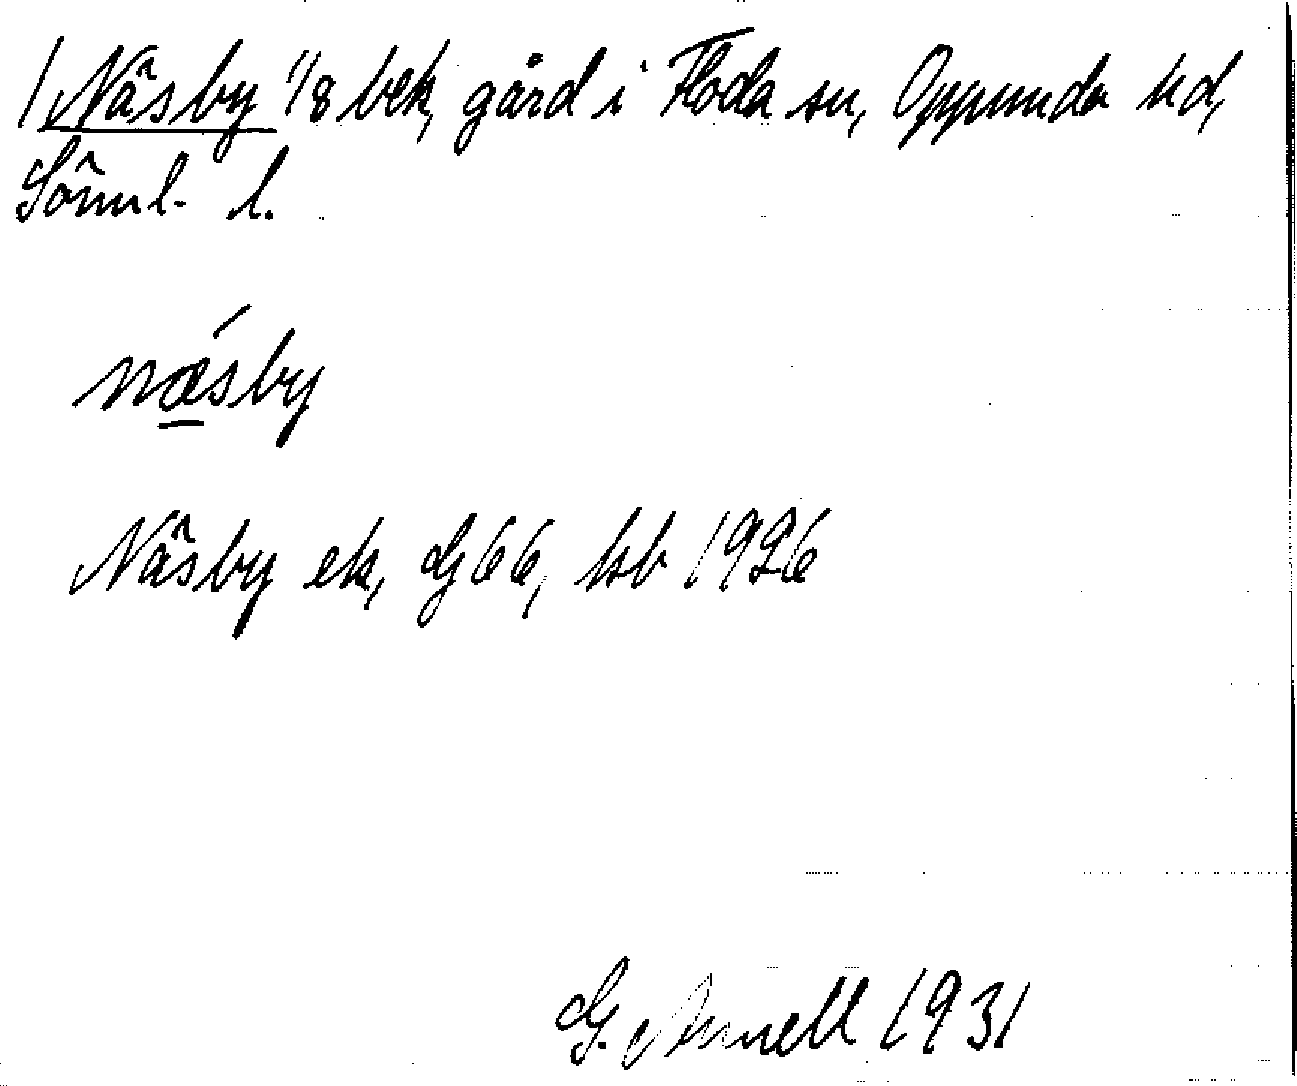 / Näsby 1/8 bek, gård i Floda sn, Oppunda hd,
Söml. l.
nǽ̱sby
Näsby ek, G66, kb 1926
G. Arnell 1931